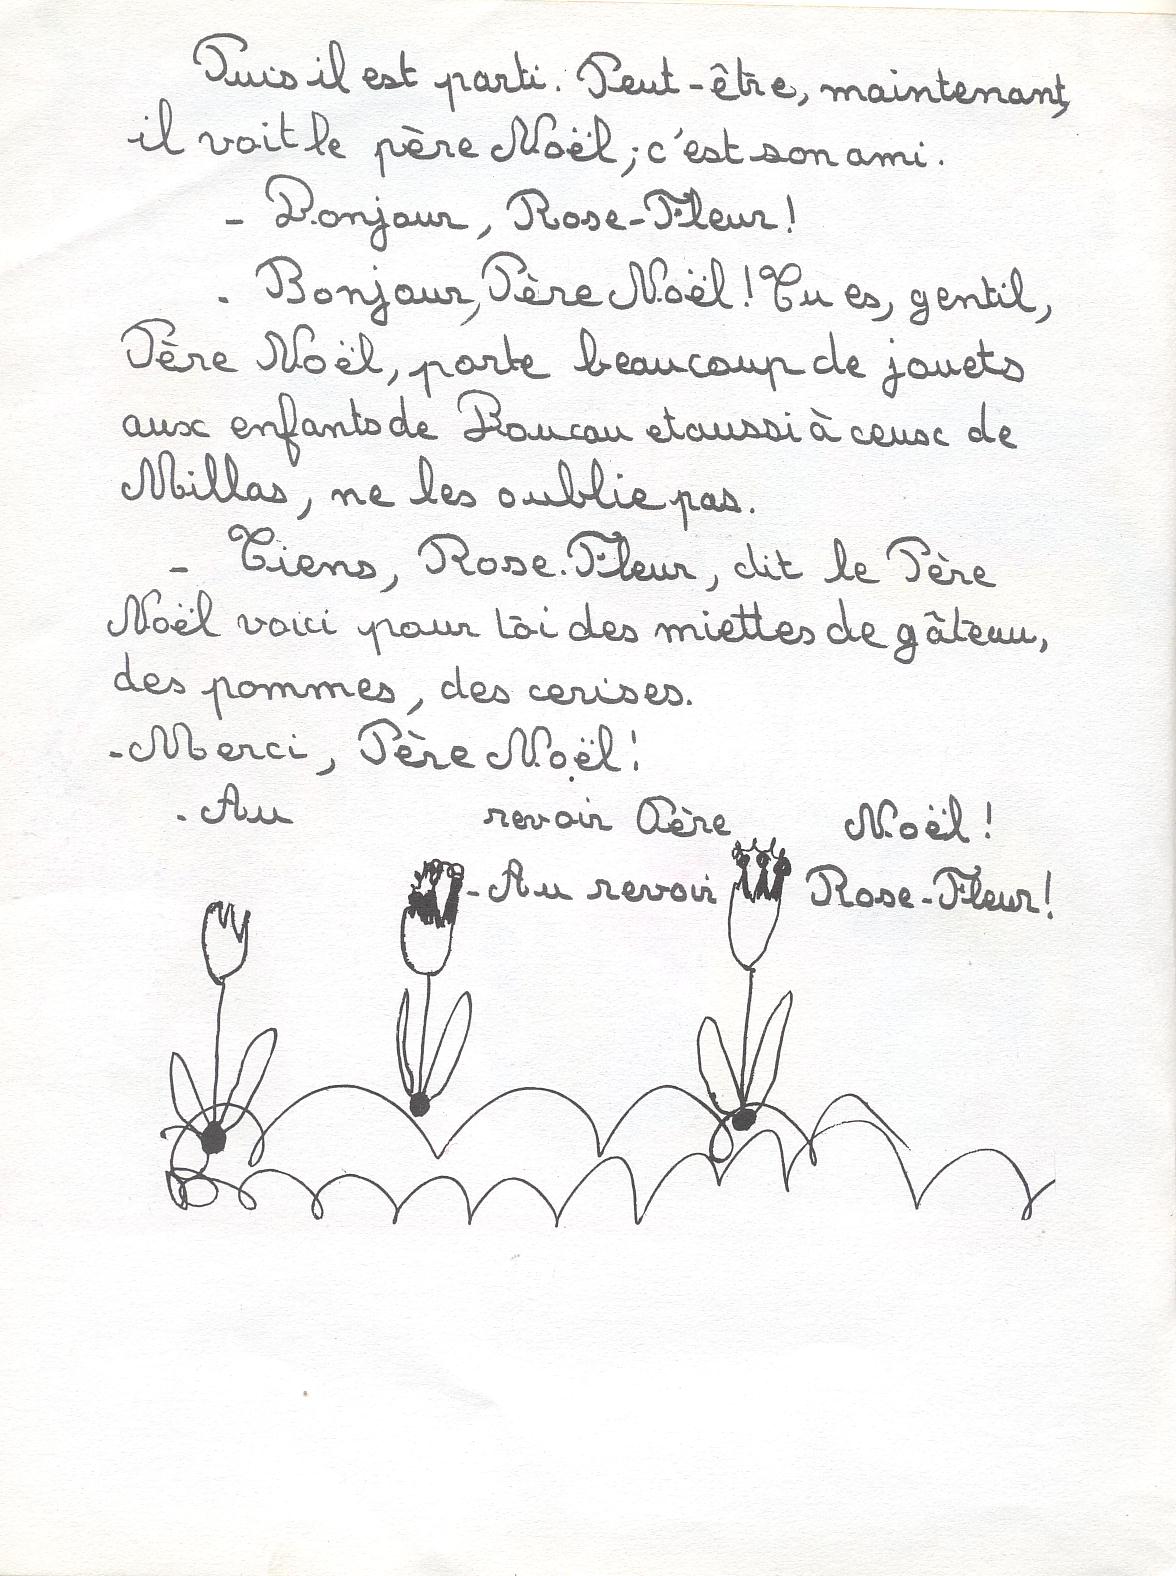 Puis il est parti. Peut-être, maintenant,
il voit le père Noël ; c'est son ami.
- Bonjour, Rose-Fleur !
- Bonjour, Père Noël ! Tu es, gentil,
Père Noël, porte beaucoup de jouets
aux enfants de Boucau et aussi à ceux de
Millas, ne les oublie pas.
- Tiens, Rose-Fleur, dit le Père
Noël voici pour toi des miettes de gâteau,
des pommes, des cerises.
- Merci, Père Noël !
- Au revoir Père Noël !
- Au revoir Rose-Fleur !